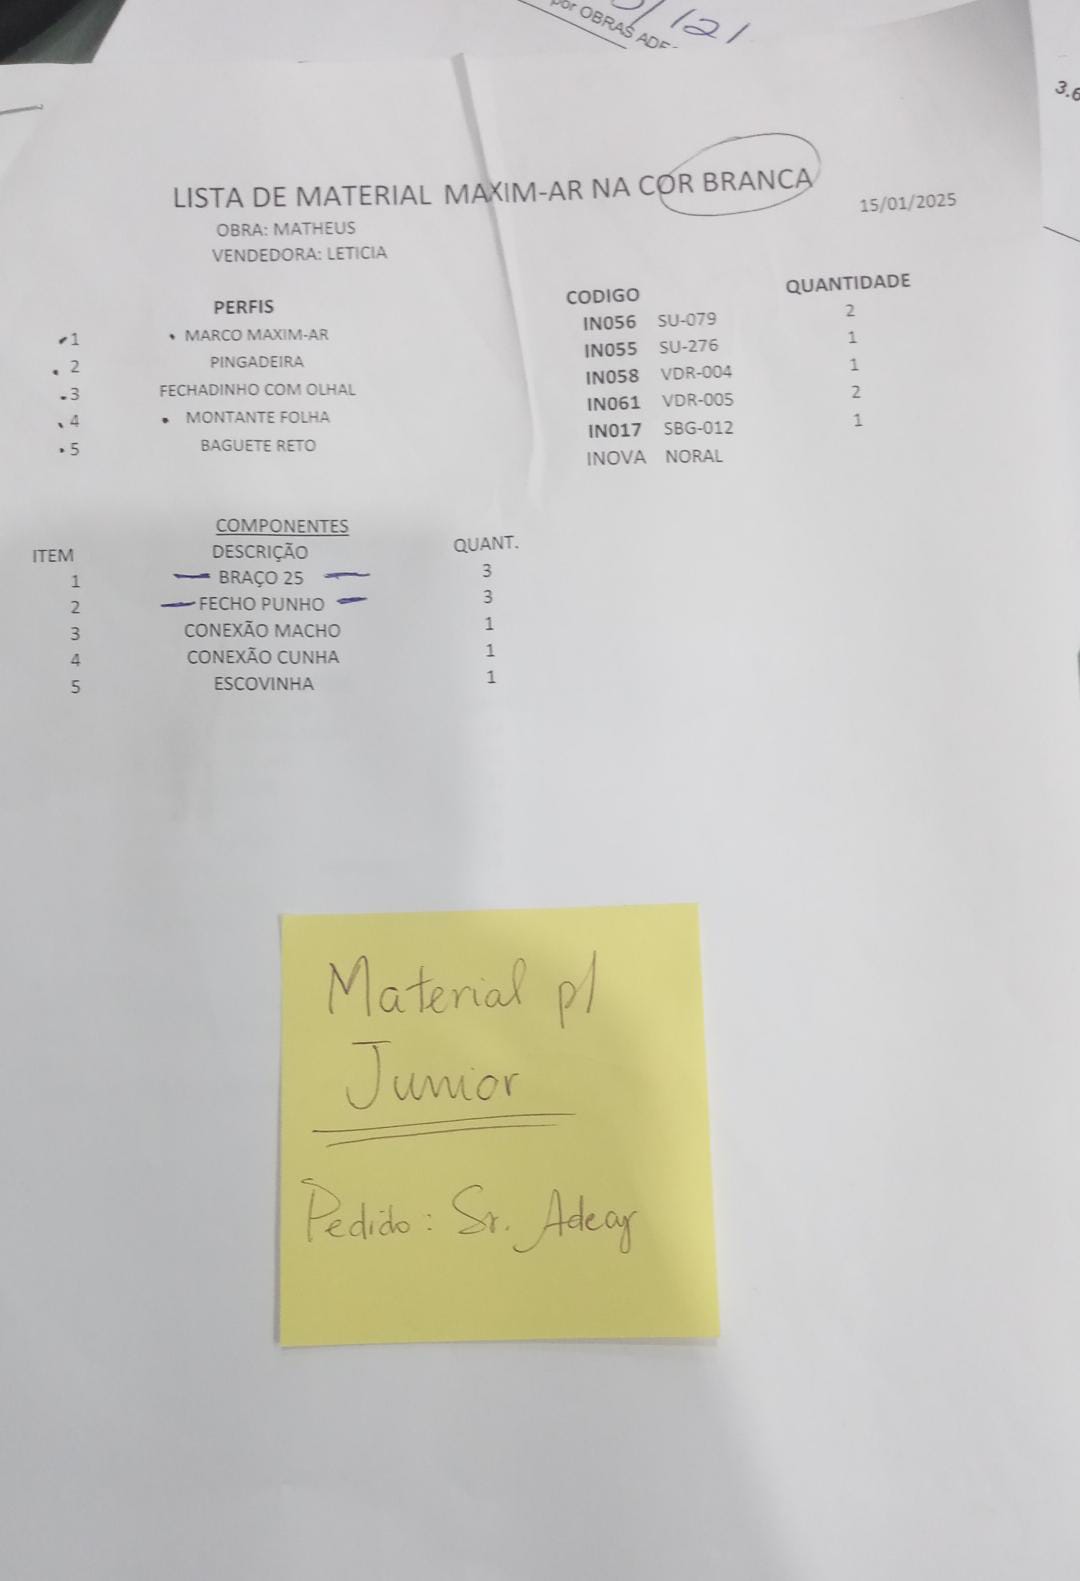 /121
por OBRAS ADE
3.6
LISTA DE MATERIAL MAXIM-AR NA COR BRANCA
15/01/2025
OBRA: MATHEUS
VENDEDORA: LETICIA
PERFIS CODIGO QUANTIDADE
1 MARCO MAXIM-AR IN056 SU-079 2
2 PINGADEIRA IN055 SU-276 1
3 FECHADINHO COM OLHAL IN058 VDR-004 1
4 MONTANTE FOLHA IN061 VDR-005 2
5 BAGUETE RETO IN017 SBG-012 1
INOVA NORAL
COMPONENTES
ITEM DESCRIÇÃO QUANT.
1 BRAÇO 25 3
2 FECHO PUNHO 3
3 CONEXÃO MACHO 1
4 CONEXÃO CUNHA 1
5 ESCOVINHA 1
Material p/
Junior
Pedido: Sr.